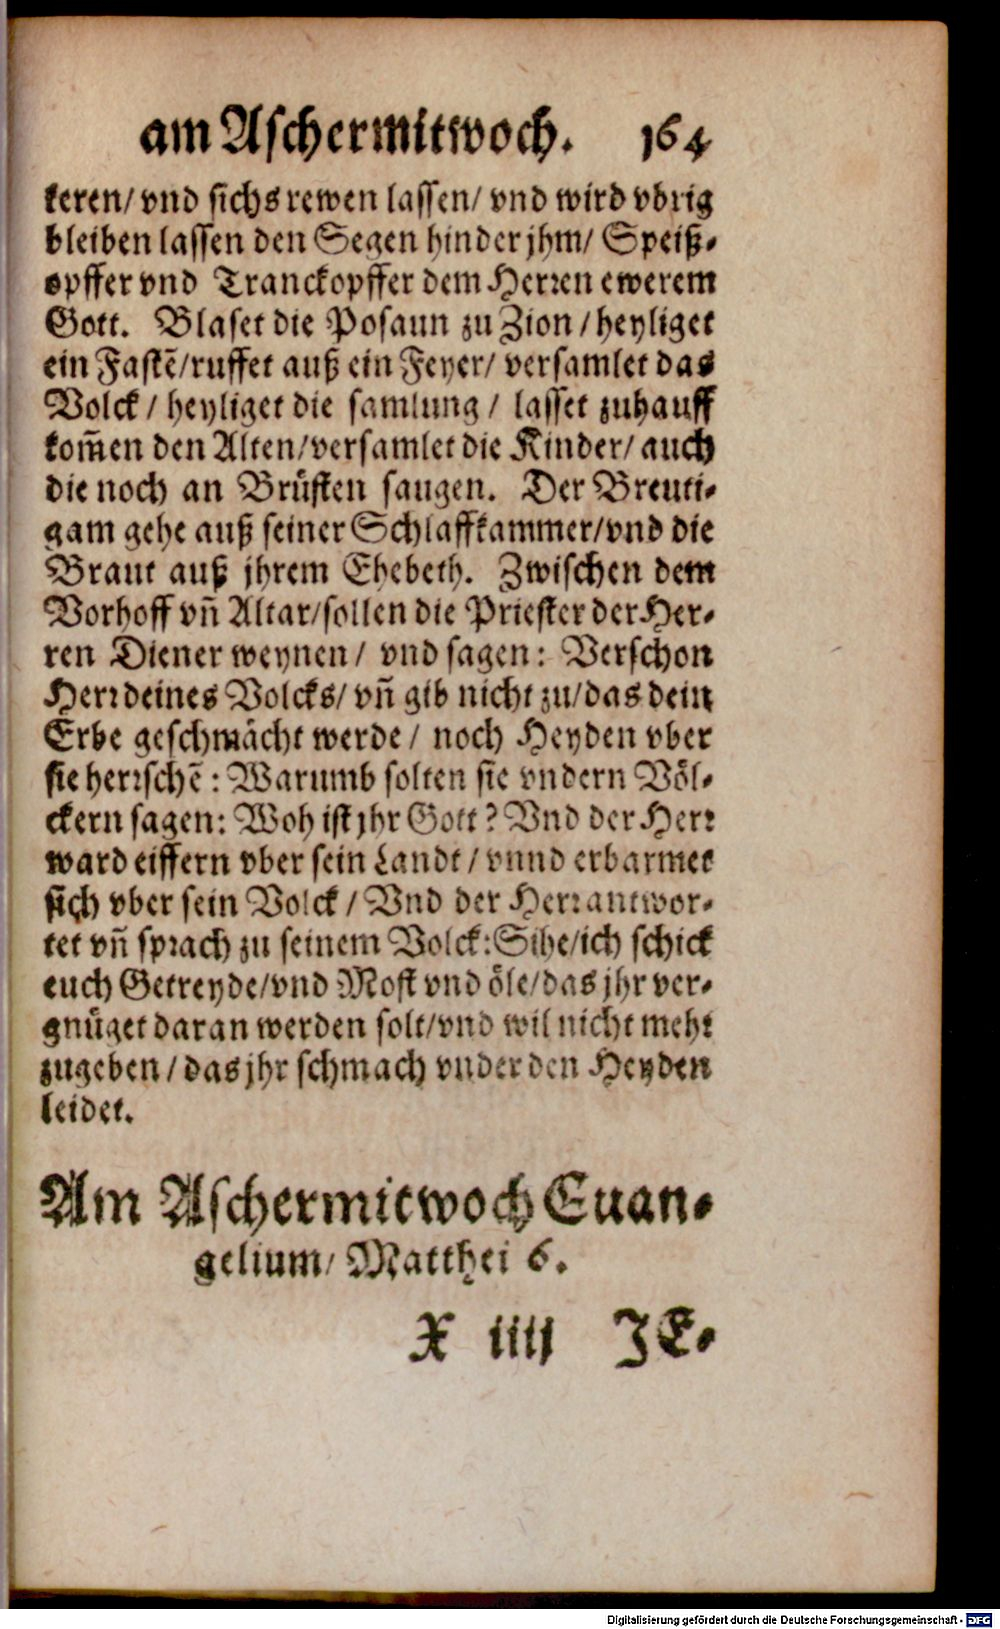 am Aschermitwoch. 164
keren/ vnd sichs rewen lassen/ vnd wird vbrig
bleiben lassen den Segen hinder jhm/ Speiß-
opffer vnd Tranckopffer dem Herren ewerem
Gott. Blaset die Posaun zu Zion / heyliget
ein Fastē/ruffet auß ein Feyer/ versamlet das
Volck / heyliget die samlung / lasset zuhauff
kom̄en den Alten/versamlet die Kinder/ auch
die noch an Brüsten saugen. Der Breuti-
gam gehe auß seiner Schlaffkammer/vnd die
Braut auß jhrem Ehebeth. Zwischen dem
Vorhoff vn̄ Altar/sollen die Priester der Her-
ren Diener weynen / vnd sagen: Verschon
Herr deines Volcks/ vn̄ gib nicht zu/das dein
Erbe geschmächt werde / noch Heyden vber
sie herrschē: Warumb solten sie vndern Völ-
ckern sagen: Woh ist jhr Gott? Vnd der Herr
ward eiffern vber sein Landt / vnnd erbarmet
sich vber sein Volck / Vnd der Herr antwor-
tet vn̄ sprach zu seinem Volck: Sihe/ich schick
euch Getreyde/vnd Most vnd öle/das jhr ver-
gnüget daran werden solt/vnd wil nicht mehr
zugeben / das jhr schmach vnder den Heyden
leidet.
Am Aschermitwoch Euan-
gelium/ Matthei 6.
X iiij JE-
Digitalisierung gefördert durch die Deutsche Forschungsgemeinschaft - DFG